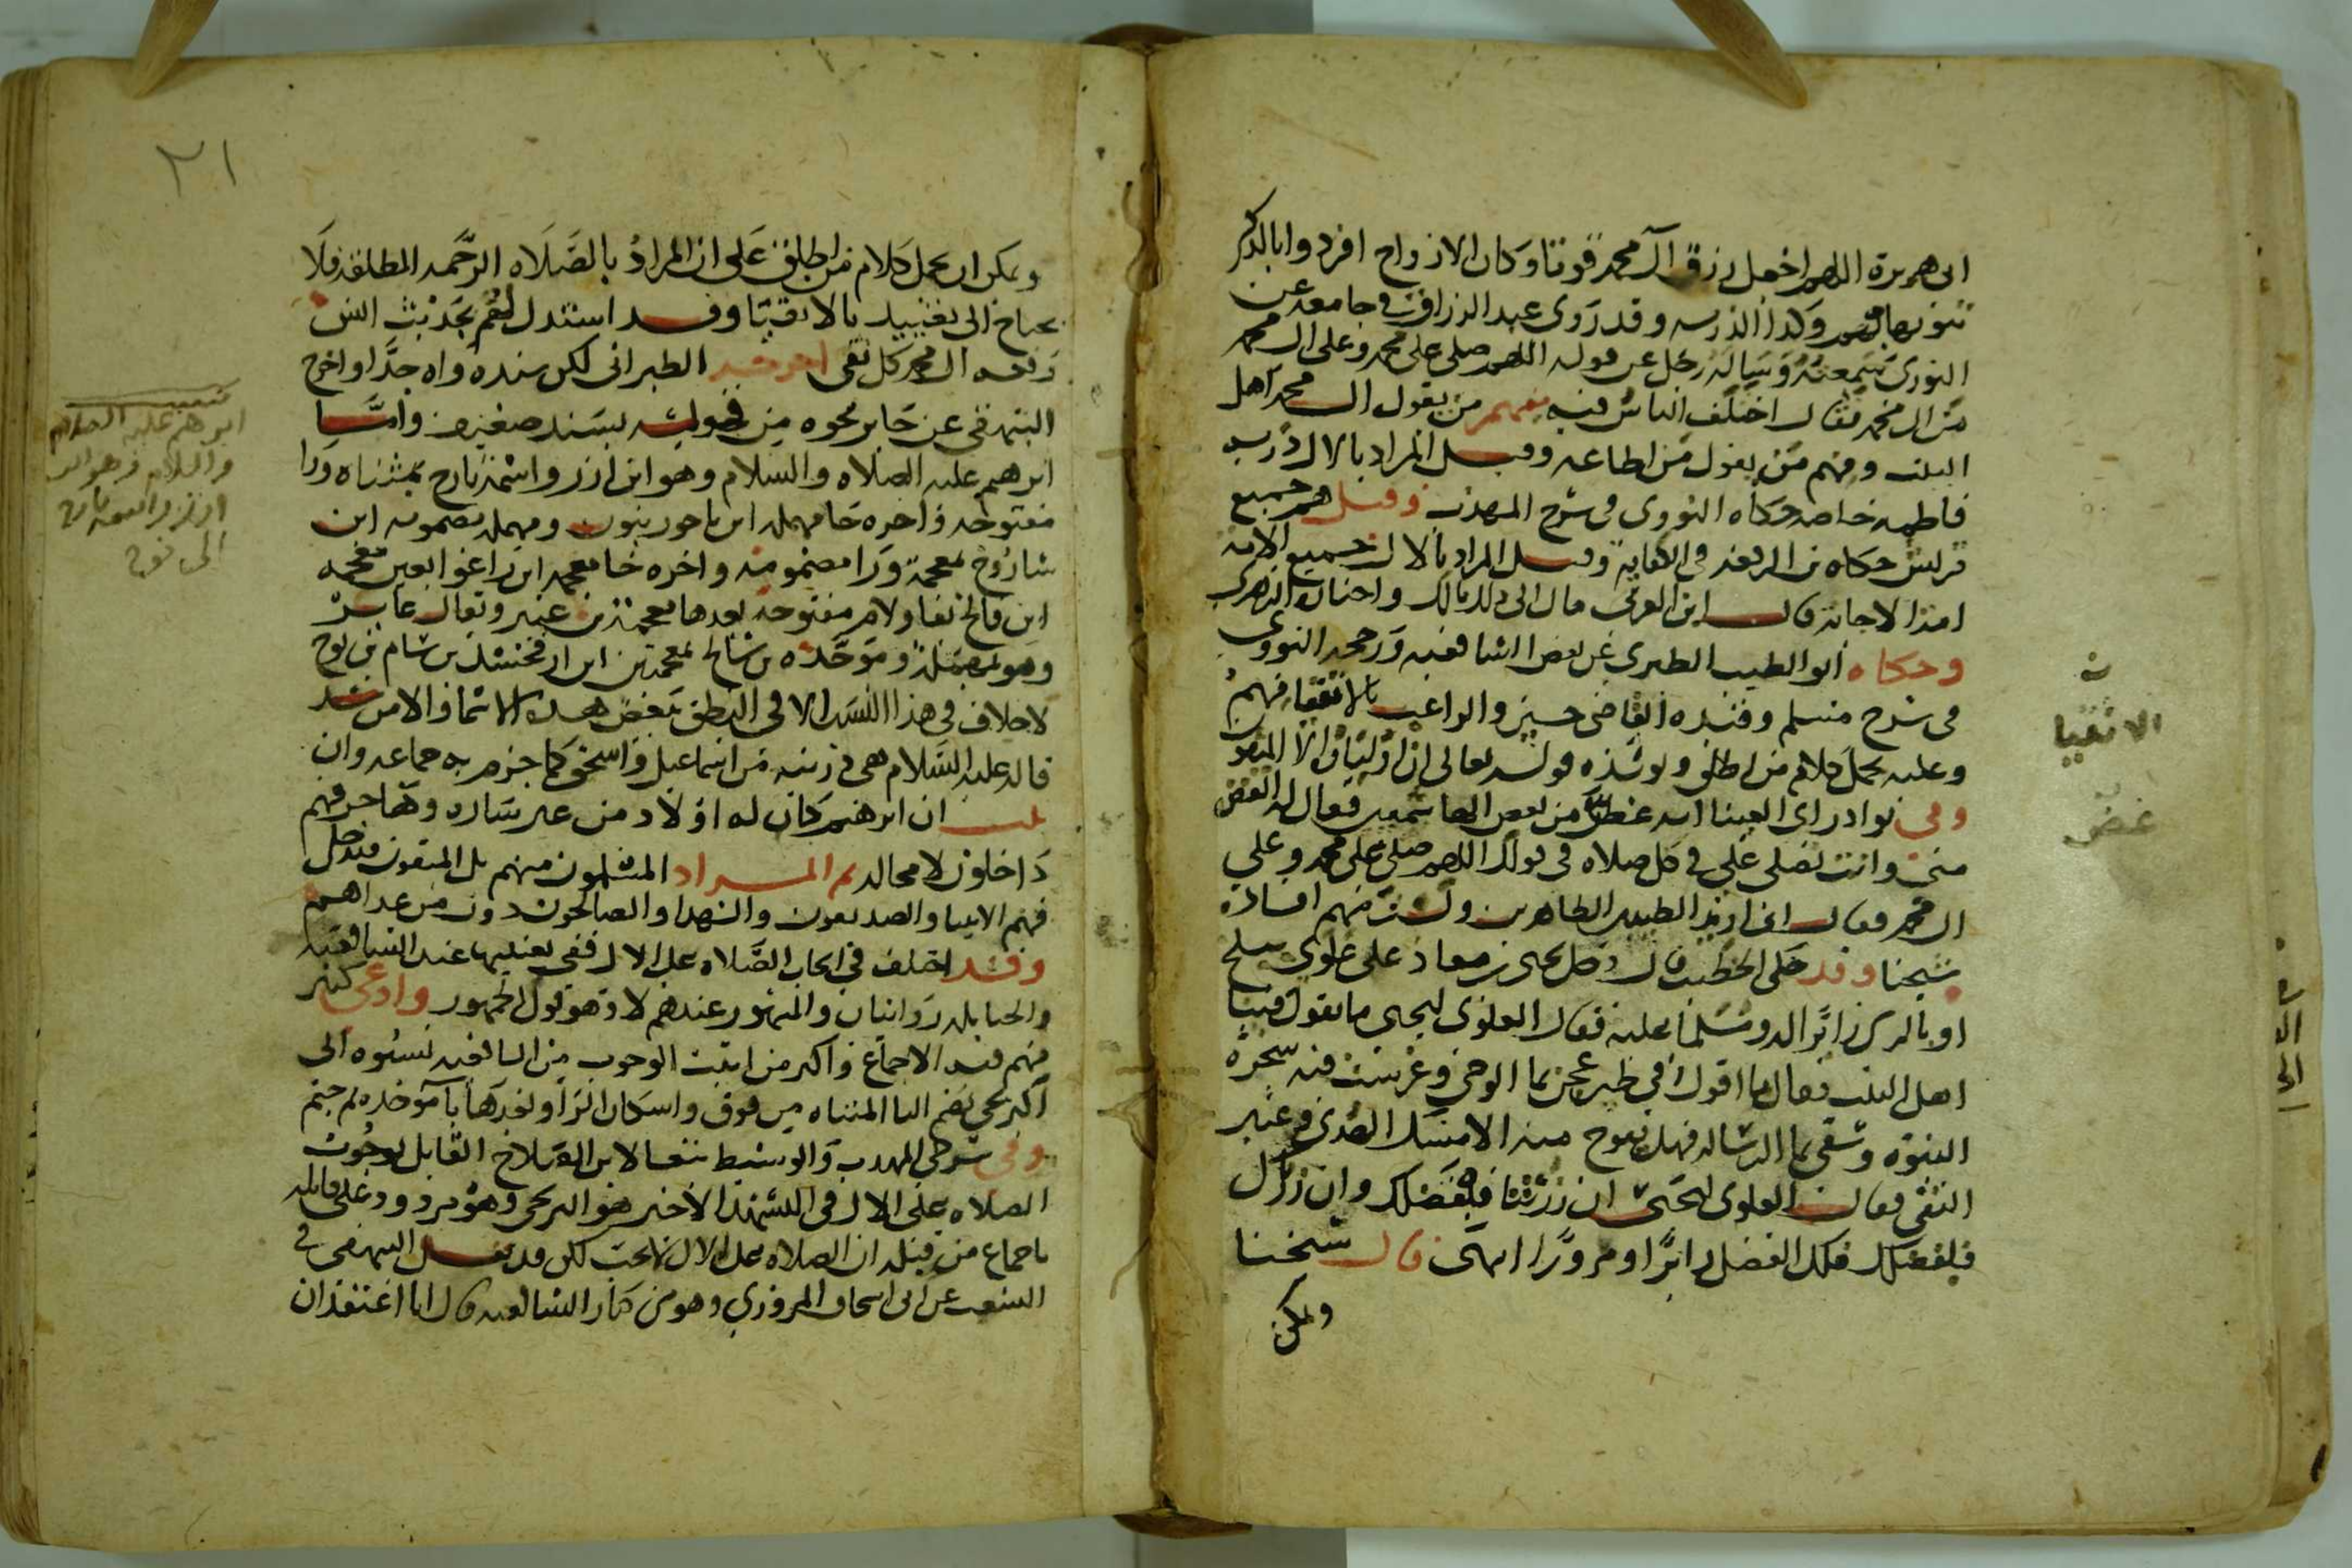 ابى هريرة اللهم اجعل رزق آل محمد قوتا وكان الازواج افردوا بالذكر
تنويها بهن وكذا الذرية وقد روى عبد الرزاق في جامعه عن
الثورى سمعته وساله رجل عن قوله اللهم صلى على محمد وعلى ال محمد
من ال محمد فقال اختلف الناس فيه فمنهم من يقول ال محمد اهل
البيت ومنهم من يقول من اطاعه وقيل المراد بالال ذرية
فاطمة خاصة حكاه النووى فى شرح المهذب وقيل هم جميع
قريش حكاه بن الرفعه في الكفاية وقيل المراد بالال جميع الامة
امة الاجابة قال ابن العربى مال الى ذلك مالك واختاره الازهرى
وحكاه ابو الطيب الطبرى عن بعض الشافعية ورجحه النووى
فى شرح مسلم وقيده القاضى حسين والراغب بالاتقيا منهم
وعليه يحمل كلام من اطلق ويويده قوله تعالى ان اولياؤه الا المتقون
وفى نوادر ابى العينا انه غض من بعض الهاشميين فقال له اتغض
منى وانت تصلى على في كل صلاة فى قولك اللهم صلى على محمد وعلى
ال محمد فقال انى اريد الطيبين الطاهرين ولست منهم افاده
شيخنا وقد حكى الخطيب قال دخل يحيى بن معاذ على علوى ببلخ
او بالرى زائرا له ومسلما عليه فقال العلوى ليحيى ما تقول فينا
اهل البيت فقال ما اقول فى طين عجن بما الوحى وغرست فيه شجرة
النبوة وسقى بما الرسالة فهل يفوح منه الا مسك الهدى وعنبر
التقى فقال العلوى ليحيى ان زرتنا فبفضلك وان زرناك
فلفضلك فلك الفضل زائرا ومزورا انتهى قال شيخنا
ويمكن
الاتقيا
غض
٢١
ويمكن ان يحمل كلام من اطلق على ان المراد بالصلاه الرحمه المطلقه فلا
يحتاج الى تقييد بالاتقيا وقد استدل لهم بحديث انس
رفعه ال محمد كل تقى اخرجه الطبرانى لكن سنده واه جدا واخرج
البيهقى عن جابر نحوه من قوله بسند ضعيف واما
ابرهيم عليه الصلاه والسلام وهو ابن ازر واسمه تارح بمثناه ورا
مفتوحه واخره حا مهمله ابن ناحور بنون ومهمله مضمومه ابن
شاروخ بمعجمة ورا مضمومه واخره خا معجمه ابن راغو بغين معجمه
ابن فالخ بفا ولام مفتوحة بعدها معجمة بن عبير ويقال عابر
وهو بمهملة وموحده بن شالخ بمعجمتين ابن ارفخشد بن سام بن نوح
لا خلاف فى هذا النسب الا فى النطق ببعض هذه الاسما والامن شد
قاله عليه السلام هى ذريته من اسماعيل واسحق كما جزم به جماعه وان
ثبت ان ابرهيم كان له اولاد من غير ساره وهاجر فهم
داخلون لا محاله ثم المراد المسلمون منهم بل المتقون فيدخل
فيهم الانبيا والصديقون والشهدا والصالحون دون من عداهم
وقد اختلف فى ايجاب الصلاه على الال ففى تعينها عند الشافعيه
والحنابله روايتان والمشهور عندهم لا وهو قول الجمهور وادعى كثير
منهم فيه الاجماع واكثر من اثبت الوجوب من الشافعيه نسبوه الى
التربجى بضم التا المثناه من فوق واسكان الرا وبعدها با موحده ثم جيم
وفى شرحى المهذب والوسيط تبعا لابن الصلاح القايل بوجوب
الصلاه على الال فى التشهد الاخير هو التربجى وهو مردود على قايله
باجماع من قبله ان الصلاه على الال لا تجب لكن قد نقل البيهقى في
الشعب عن ابى اسحاق المروزي وهو من كبار الشافعيه قال انا اعتقد ان
ابرهيم عليه السلام
ازر
الى نوح